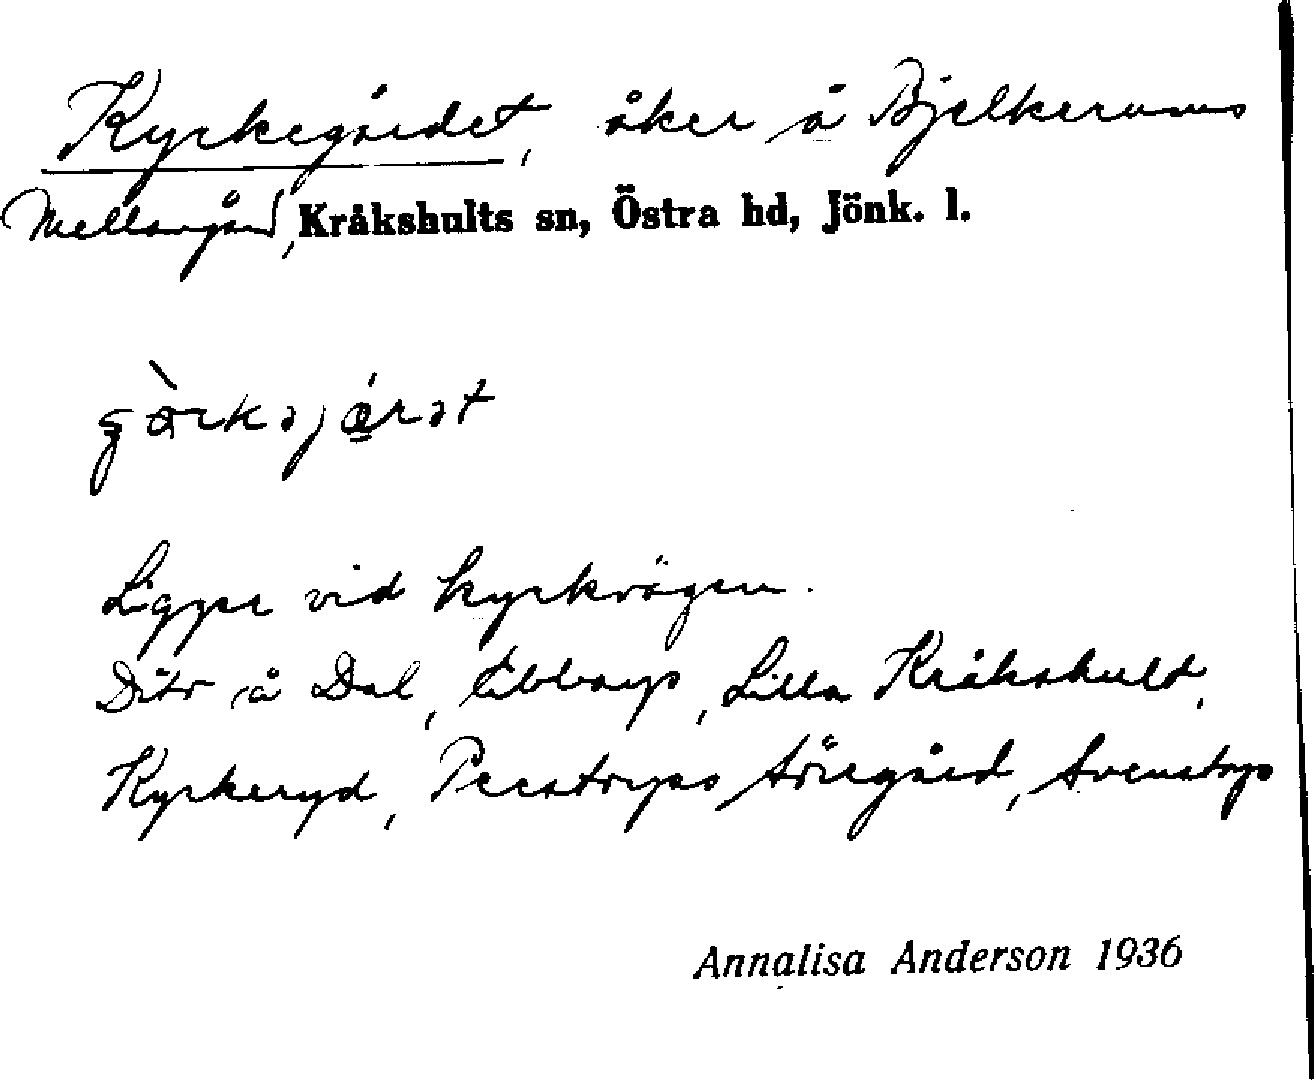 Kyrkegärdet, åker å Bjelkerums
Mellangård, Kråkshults sn, Östra hd, Jönk. l.
Ligger vid kyrkvägen.
Dito å Dal, Ebbarp, Lilla Kråkshult,
Kyrkeryd, Perstorps Störegård, Svenstorp
Annalisa Anderson 1936